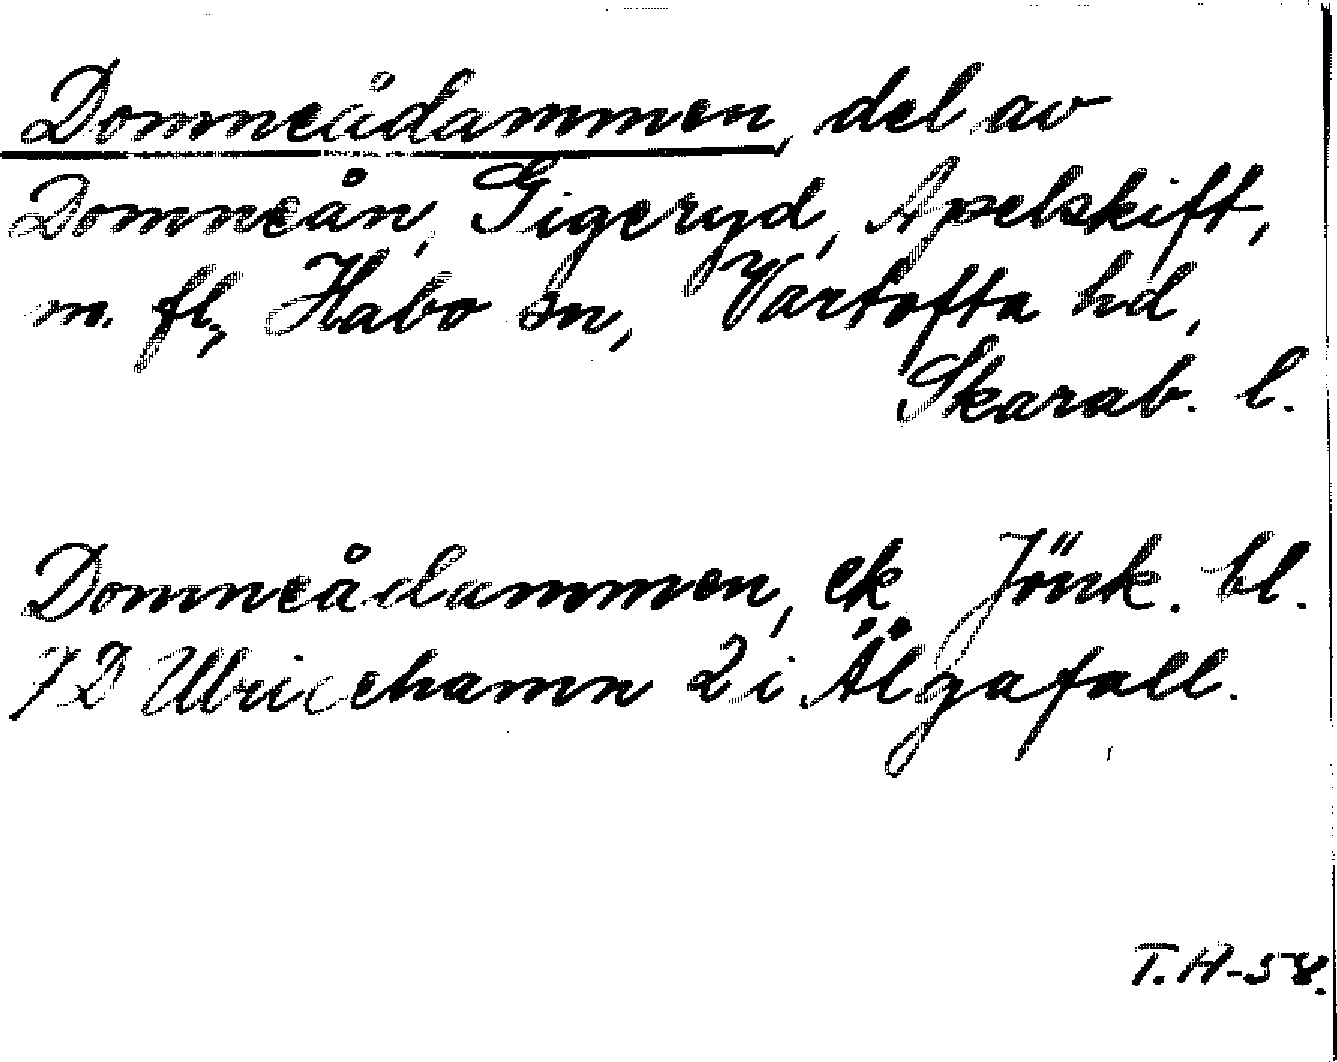 Domneådammen, del av
Domneån, Gigeryd, Apelskift,
m. fl., Habo sn, Vartofta hd,
Skarab. l.
Domneådammen, ek Jönk. bl.
7D Ulricehamn 2i Älgafall.
T.H-58.